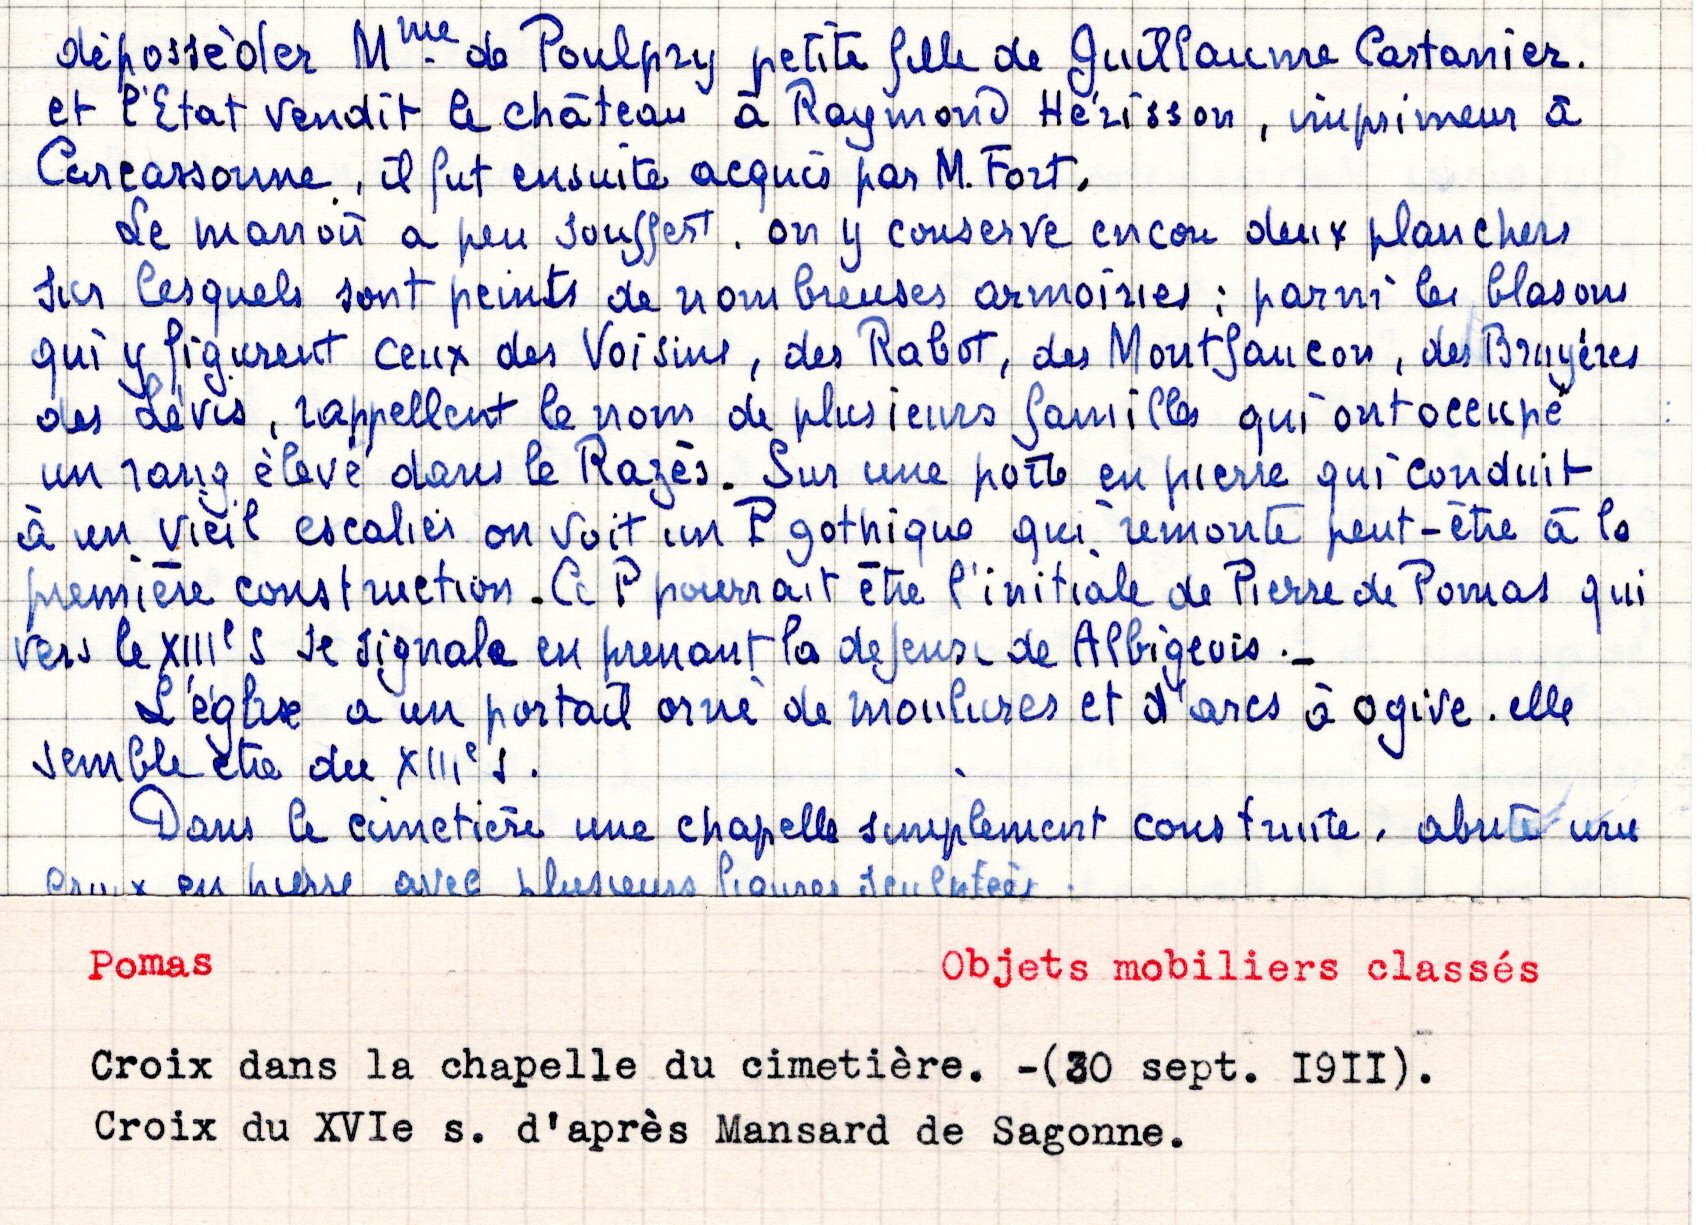 dépossèder Mme de Poulpry petite fille de Guillaume Castanier.
et l'Etat vendit le château à Raymond Hérisson, imprimeur à
Carcassonne, il fut ensuite acquis par M. Fort.
Le manoir a peu souffert. on y conserve encore deux planchers
sur lesquels sont peints de nombreuses armoiries ; parmi les blasons
qui y figurent ceux des Voisins, des Rabot, des Montfaucon, des Bruyères
des Lévis, rappellent le nom de plusieurs familles qui ont occupé
un rang élevé dans le Razès. Sur une porte en pierre qui conduit
à un vieil escalier on voit un P gothique qui remonte peut-être à la
première construction. Ce P pourrait être l'initiale de Pierre de Pomas qui
vers le XIIIe S se signala en prenant la defense de Albigeois.-
L'église a un portail orné de moulures et d'arcs à ogive. elle
semble être du XIIIe s.
Dans le cimetière une chapelle simplement construite, abrite une
croix en pierre avec plusieurs figures sculptées.
Pomas Objets mobiliers classés
Croix dans la chapelle du cimetière. -(30 sept. I9II).
Croix du XVIe s. d'après Mansard de Sagonne.